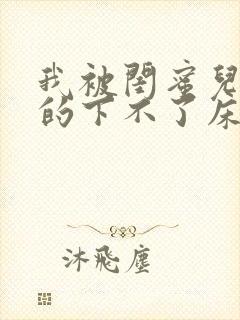 我被閨蜜兒
的下不了床
沐飛塵